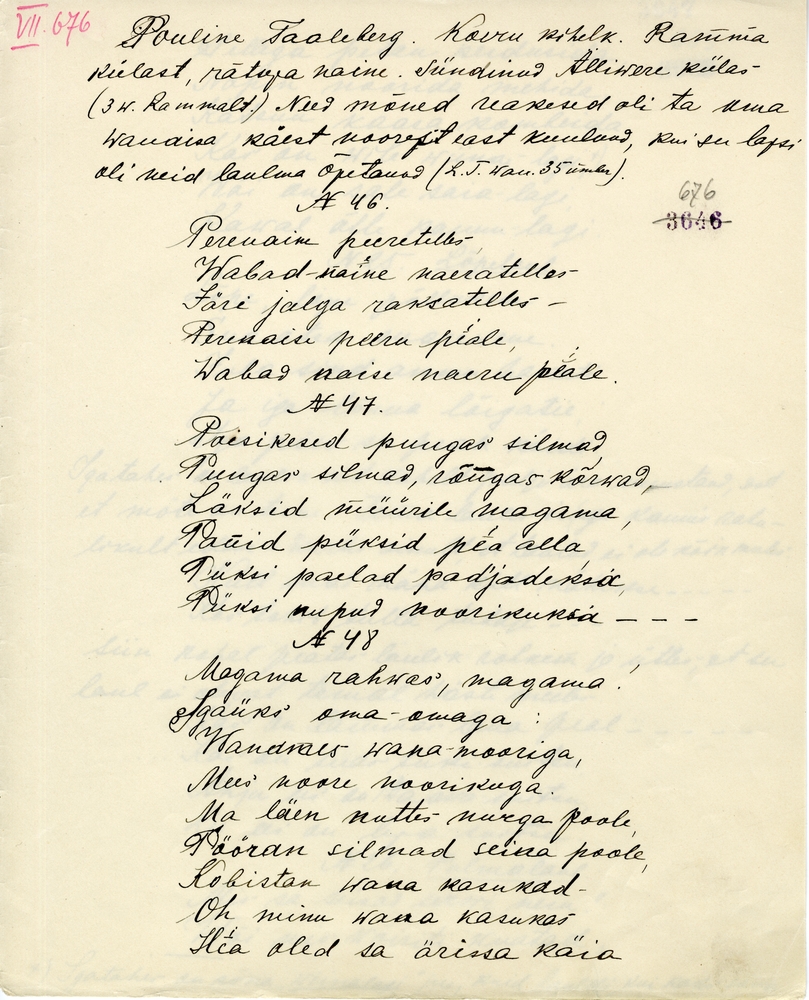 VII. 676
Pouline Taaleberg. Koeru kihelk. Ramma
külast, rätsepa naine. Sündinud Älliwere külas
(3 w. Rammalt.) Need mõned reakesed oli ta oma
wanaisa käest noorest east kuulnud, kui su lapsi
oli neid laulma õpetanud (L. T. wan. 35 ümber).
676
3646
№ 46.
Perenaim peeretelles,
Wabad-naine naeratelles
Järi jalga raksatelles –
Perenaise peeru péale,
Wabad naise naeru péale.
№ 47.
Poisikesed pungas silmad,
Pungas silmad, rõngas kõrwad,
Läksid müürile magama,
Panid püksid péa alla
Püksi paelad padjadeksa,
Püksi nupud noorikuksa – – –
№ 48
Magama rahwas, magama!
Igaüks oma-omaga:
Wanames wana-mooriga,
Mees noore noorikuga.
Ma läen nuttes nurga poole,
Pööran silmad seina poole,
Kobistan wana kasukad-
Oh minu wana kasukas
Hía oled sa ärissa käia